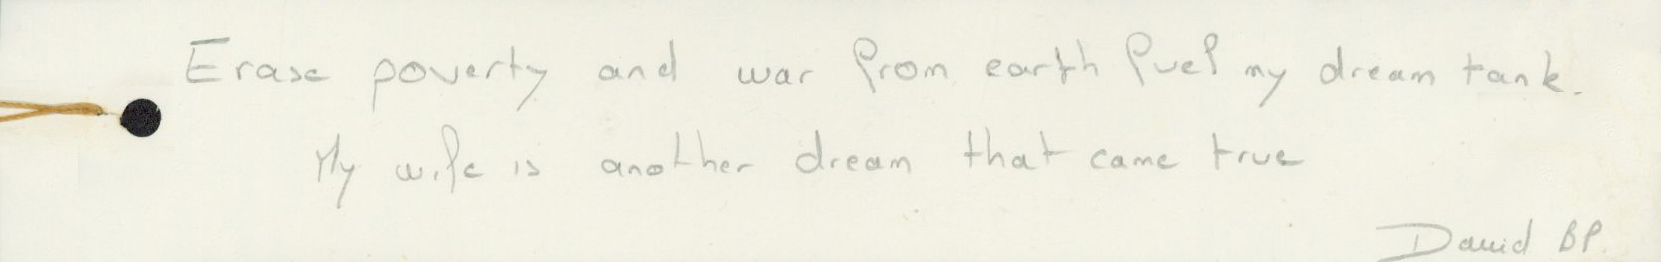 Erase poverty and war from earth fuel my dream tank.
My wife is another dream that came true
David BP.